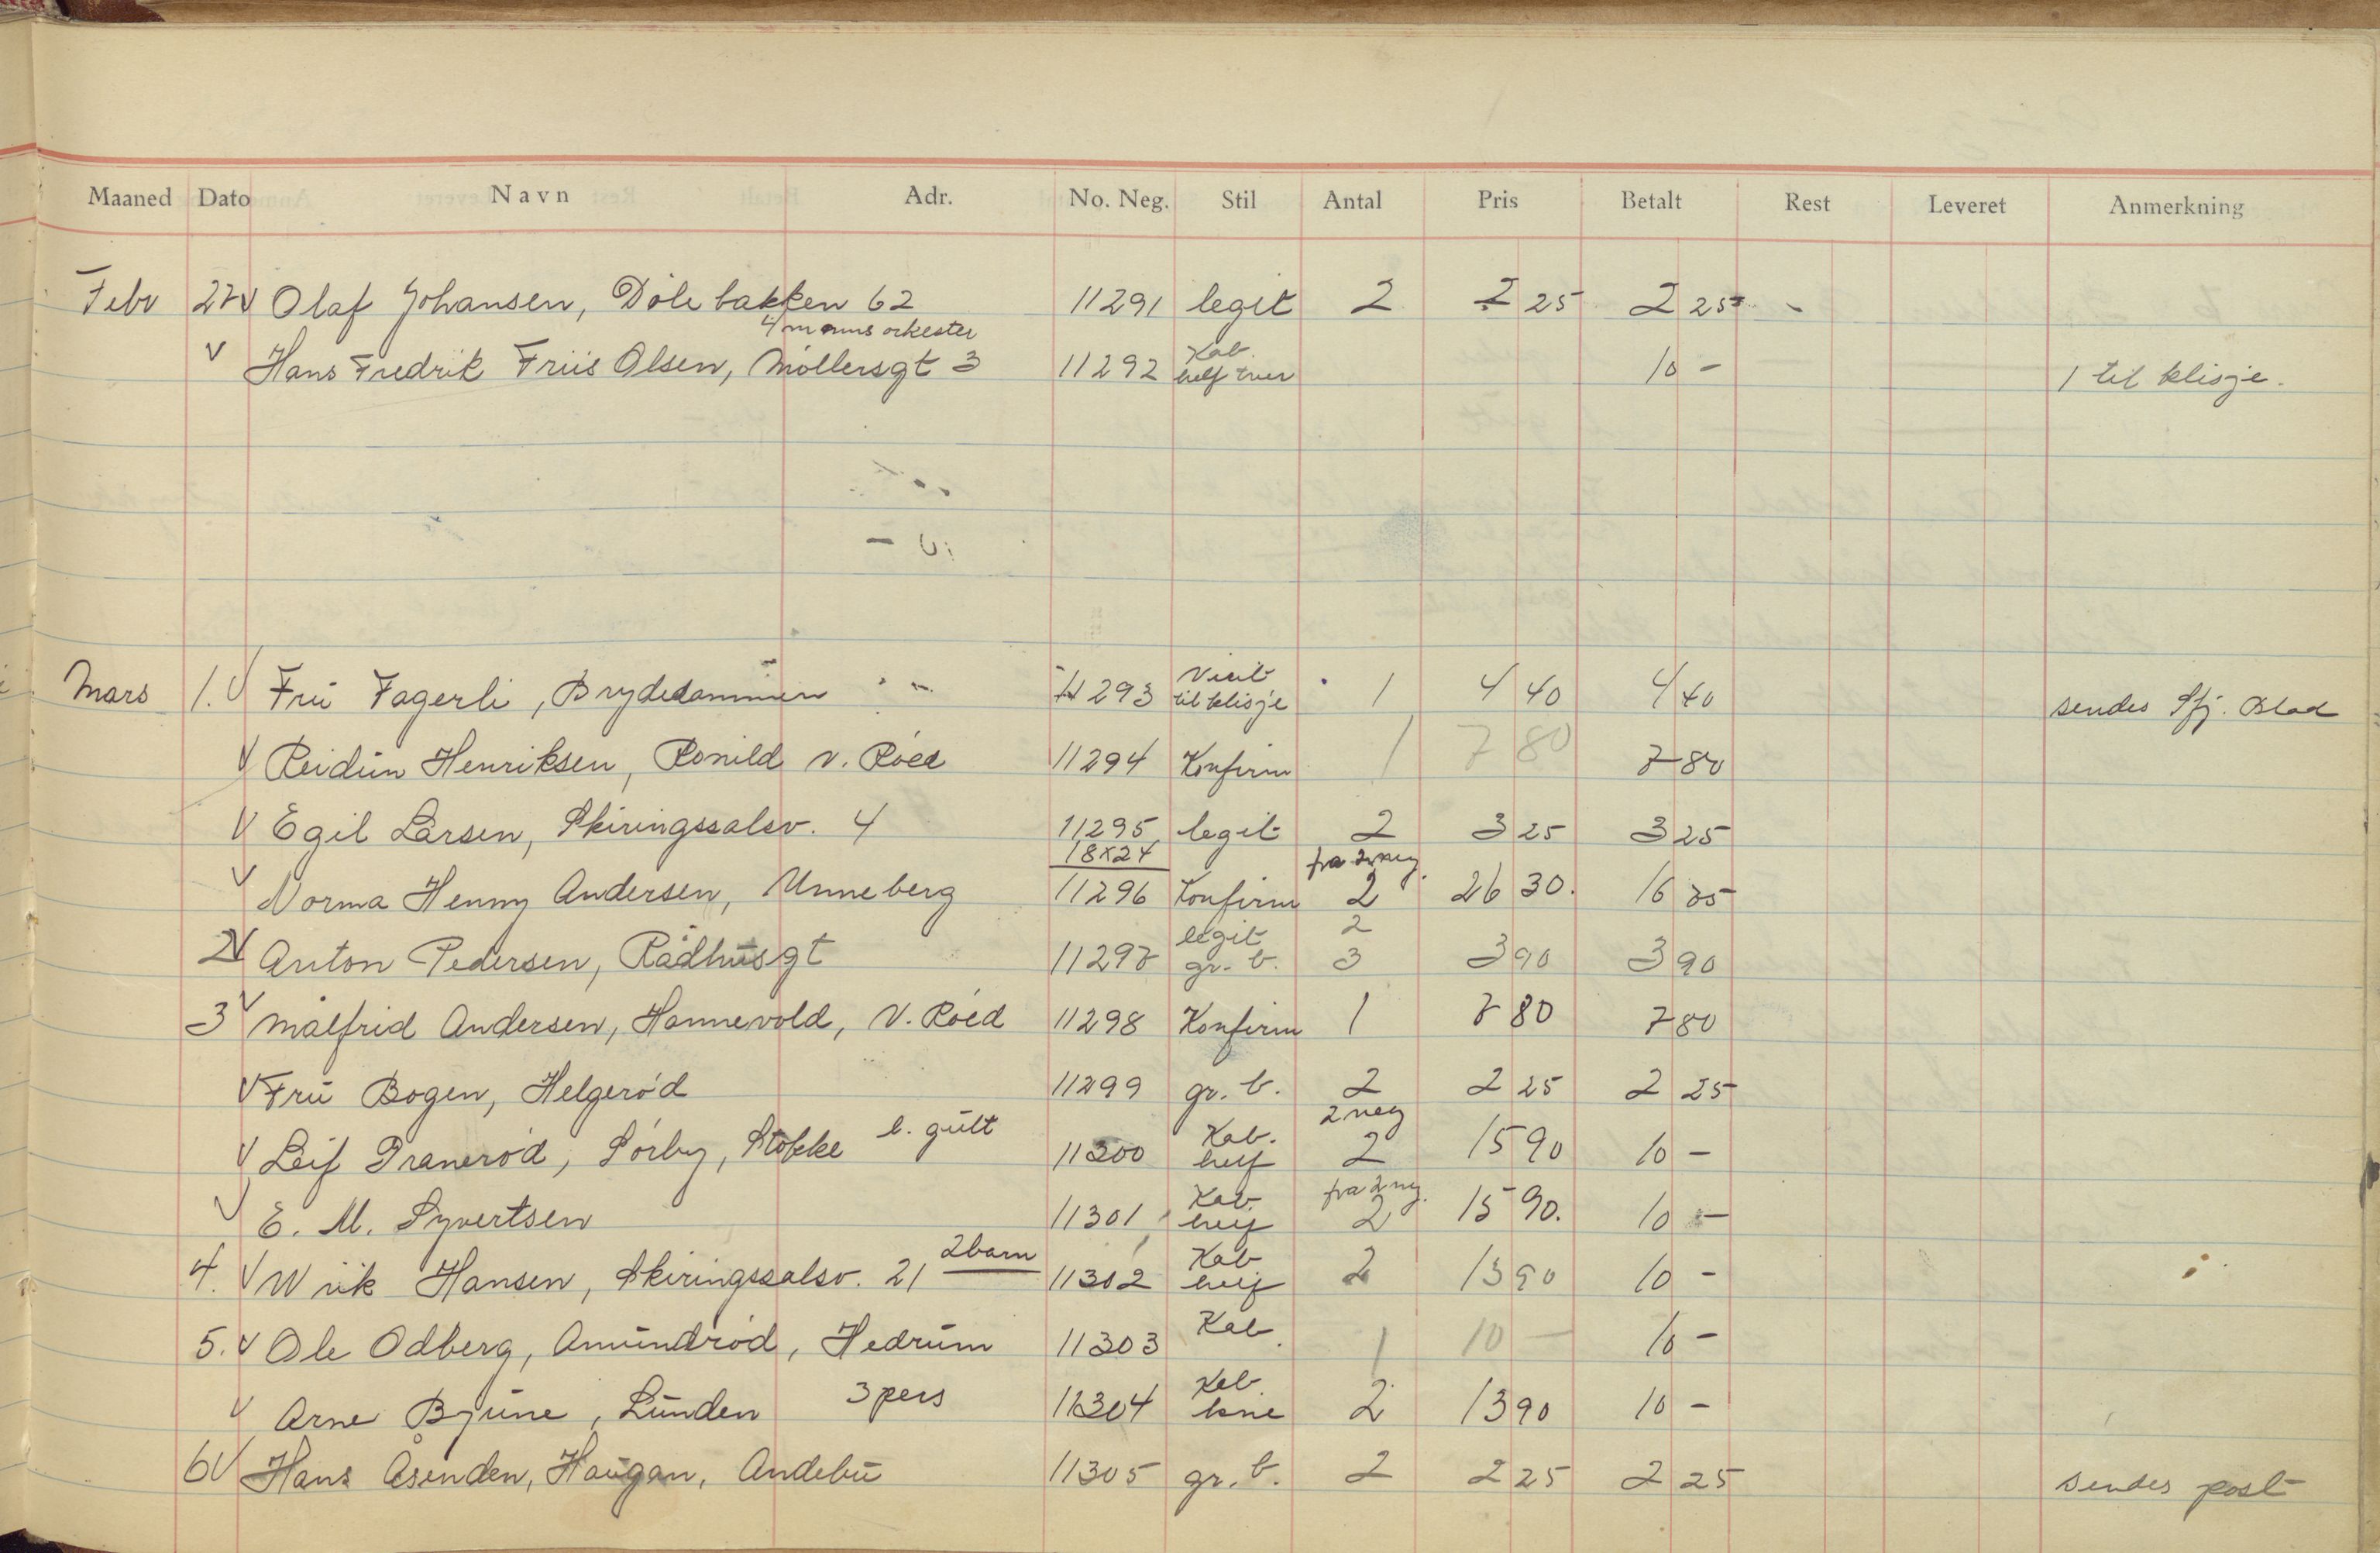 Maaned Dato Navn Adr. No. Neg. Stil Antal Pris Betalt Rest Leveret Anmerkning
Febr 27 V Olaf Johansen, Dölebakken 62 11291 legit 2 2 25 2 25 -
4 manns orkester
V Hans Fredrik Friis Olsen, Möllersgt 3 11292 Kab. helf tver 10 - 1 til klisje.
Mars 1. V Frü Fagerli, Brydedammen 11293 Visit til klisje 1 4 40 4 40 sendes Sfj. Blad
V Reidün Henriksen, Ronild v. Röed 11294 Konfirm 1 7 80 7 80
V Egil Larsen, Skiringssalsv. 4 11295 legit 2 3 25 3 25
18x24 fra 2 neg.
V Norma Henny Andersen, Unneberg 11296 Konfirm 2 26 30. 16 25
2 V Anton Pedersen, Rådhüsgt 11297 legit 2 gr. b. 3 3 90 3 90
3 V Målfrid Andersen, Hannevold, V. Röed 11298 Konfirm 1 7 80 7 80
V Frü Bogen, Helgeröd 11299 gr. b. 2 2 25 2 25
2 neg
V Leif Praneröd, Sörby, Stokke b. gült 11300 Kab. helf 2 15 90 10 -
fra 2 neg.
V E. M. Syvertsen 11301 Kab. helf 2 15 90. 10 -
4. V Wiik Hansen, Skiringssalsv. 21 2 barn 11302 Kab helf 2 13 90 10 -
5. V Ole Odberg, Amündröd, Hedrüm 11303 Kab. 1 10 - 10 -
V Arne Bjüne, Lünden 3 pers 11304 Kab. kne 2 13 90 10 -
6 V Hans Åsenden, Haügan, Andebü 11305 gr. b. 2 2 25 2 25 sendes post